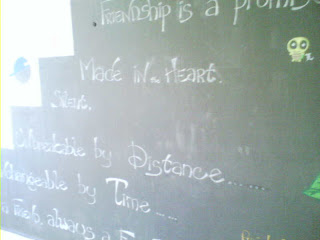 FRIENDSHIP is a promise
MADE IN the HEART.
Silent.
Unbreakable by DISTANCE......
Unchangeable by TIME.....
always a